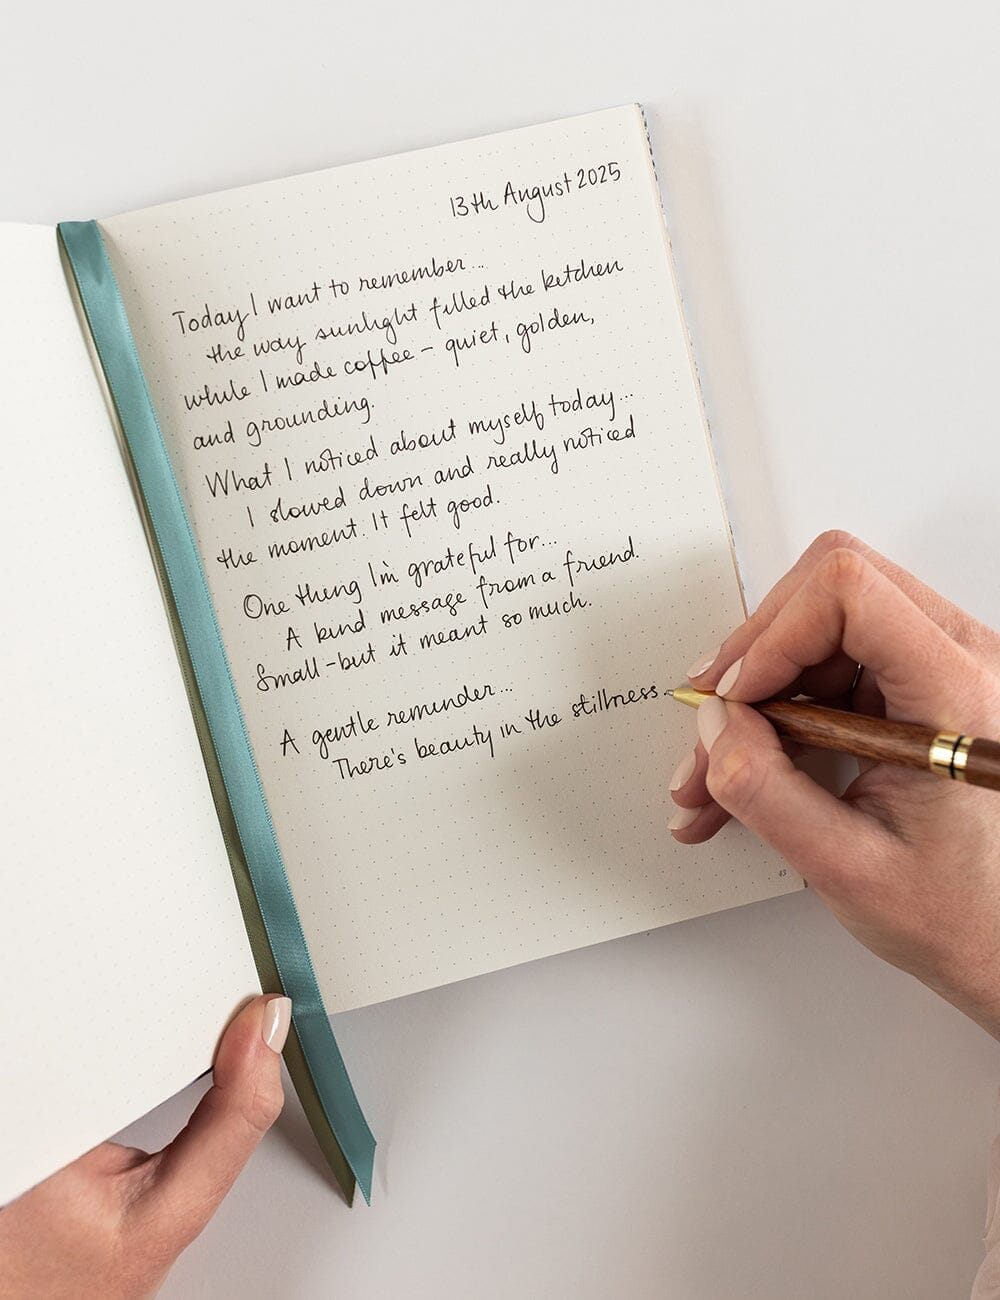 13th August 2025
Today I want to remember...
the way sunlight filled the kitchen
while I made coffee – quiet, golden,
and grounding.
What I noticed about myself today...
I slowed down and really noticed
the moment. It felt good.
One thing I'm grateful for...
A kind message from a friend.
Small – but it meant so much.
A gentle reminder...
There's beauty in the stillness.
43